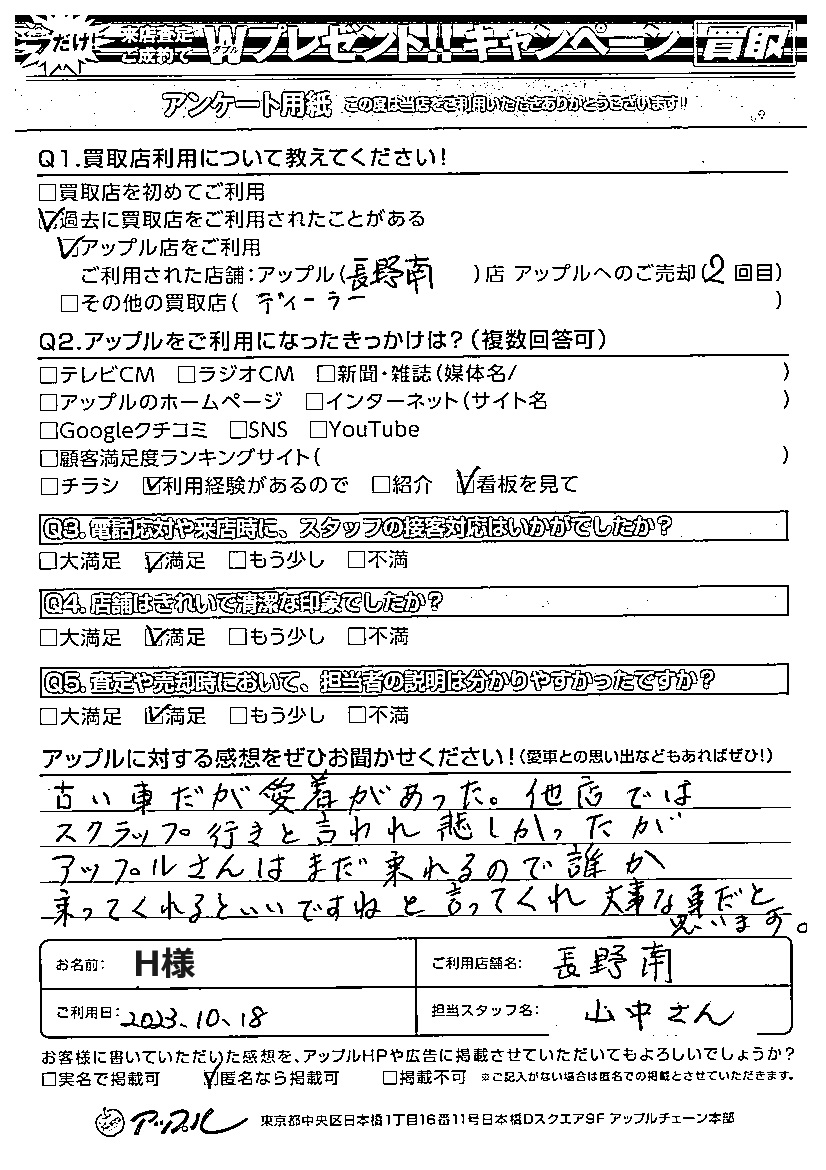 だけ! 来店査定ご成約で Wダブルプレゼント!!キャンペーン 買取
アンケート用紙 この度は当店をご利用いただきありがとうございます!!
Q1.買取店利用について教えてください!
□買取店を初めてご利用
☑過去に買取店をご利用されたことがある
☑アップル店をご利用
ご利用された店舗:アップル(長野南 )店 アップルへのご売却(2回目)
□その他の買取店( ディーラー )
Q2.アップルをご利用になったきっかけは?(複数回答可)
□テレビCM □ラジオCM □新聞・雑誌(媒体名/ )
□アップルのホームページ □インターネット(サイト名 )
□Googleクチコミ □SNS □YouTube
□顧客満足度ランキングサイト( )
□チラシ ☑利用経験があるので □紹介 ☑看板を見て
Q3.電話応対や来店時に、スタッフの接客対応はいかがでしたか?
□大満足 ☑満足 □もう少し □不満
Q4.店舗はきれいで清潔な印象でしたか?
□大満足 ☑満足 □もう少し □不満
Q5.査定や売却時において、担当者の説明は分かりやすかったですか?
□大満足 ☑満足 □もう少し □不満
アップルに対する感想をぜひお聞かせください!(愛車との思い出などもあればぜひ!)
古い車だが愛着があった。他店では
スクラップ行きと言われ悲しかったが
アップルさんはまだ乗れるので誰か
乗ってくれるといいですねと言ってくれ大事な車だと
思います。
お名前: H様 ご利用店舗名: 長野南
ご利用日: 2023.10.18 担当スタッフ名: 山中さん
お客様に書いていただいた感想を、アップルHPや広告に掲載させていただいてもよろしいでしょうか?
□実名で掲載可 ☑匿名なら掲載可 □掲載不可 ※ご記入がない場合は匿名での掲載とさせていただきます。
アップル 東京都中央区日本橋1丁目16番11号日本橋Dスクエア9F アップルチェーン本部